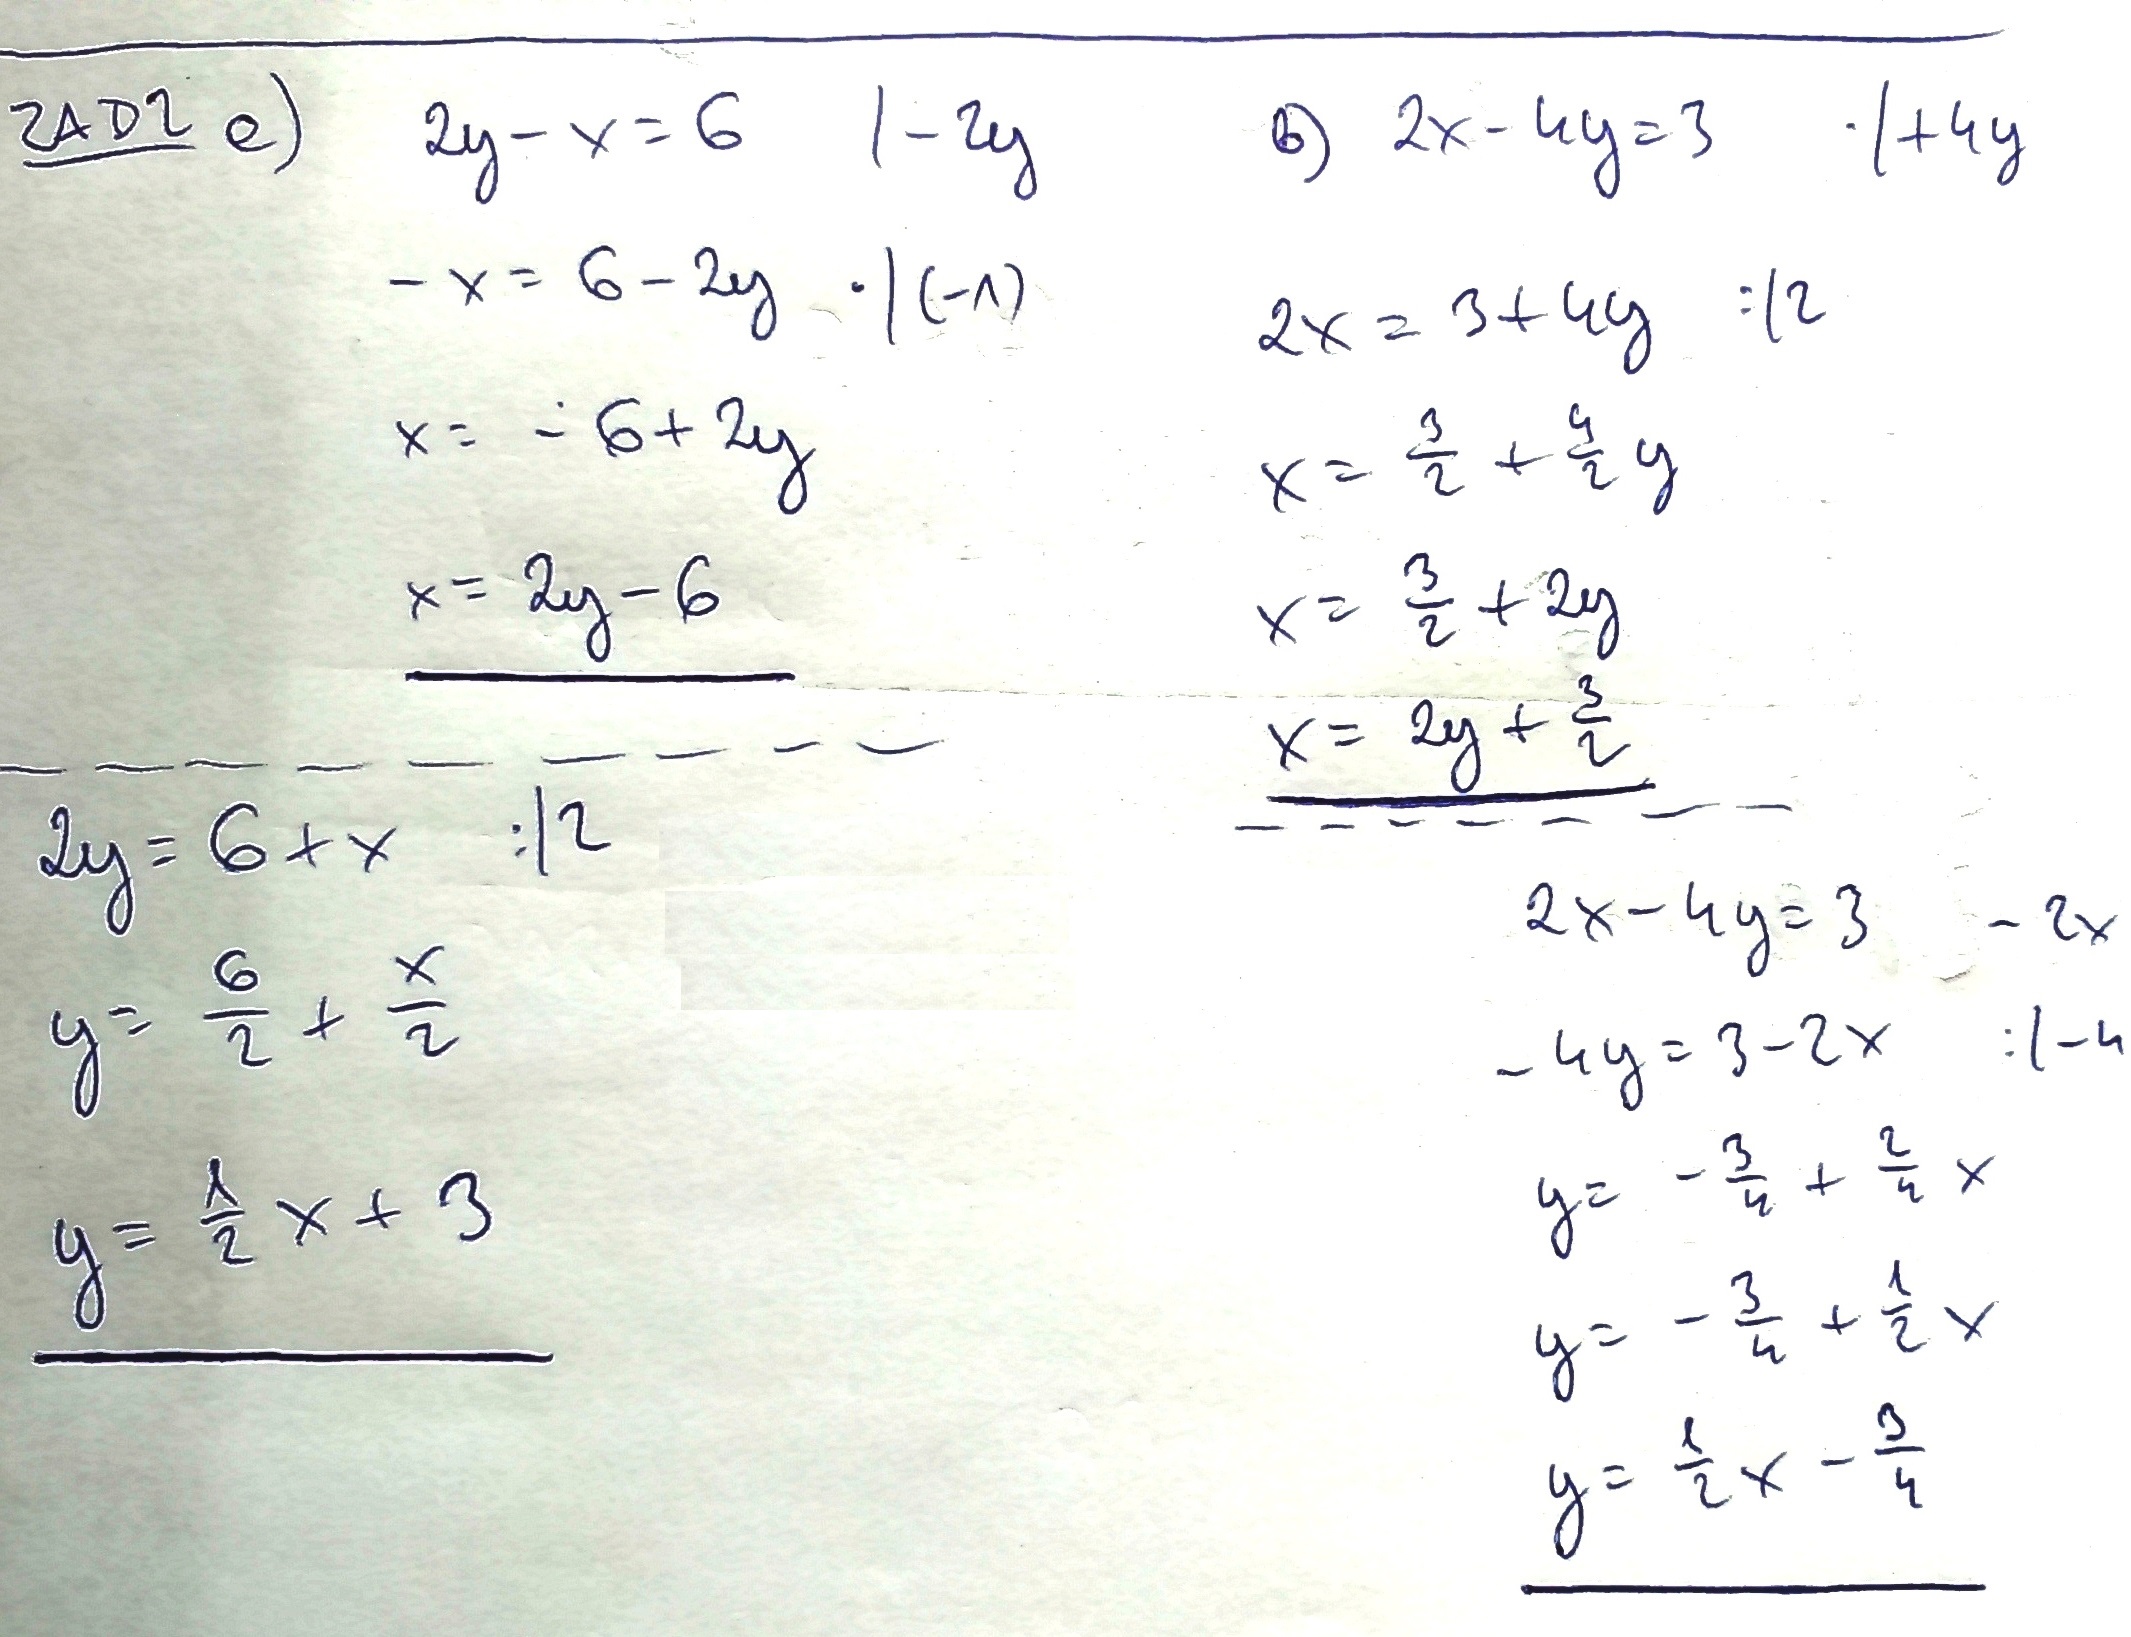 ZAD2 a) 2y - x = 6 /-2y
-x = 6 - 2y ·/(-1)
x = -6 + 2y
x = 2y - 6
2y = 6 + x :/2
y = 6/2 + x/2
y = 1/2 x + 3
b) 2x - 4y = 3 ·/+4y
2x = 3 + 4y :/2
x = 3/2 + 4/2 y
x = 3/2 + 2y
x = 2y + 3/2
2x - 4y = 3 -2x
-4y = 3 - 2x :/-4
y = -3/4 + 2/4 x
y = -3/4 + 1/2 x
y = 1/2 x - 3/4